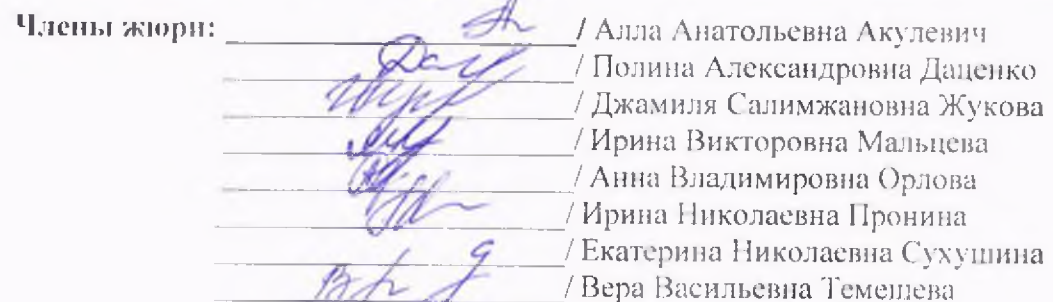 Члены жюри: / Алла Анатольевна Акулевич
/ Полина Александровна Даценко
/ Джамиля Салимжановна Жукова
/ Ирина Викторовна Мальцева
/ Анна Владимировна Орлова
/ Ирина Николаевна Пронина
/ Екатерина Николаевна Сухушина
/ Вера Васильевна Темешева